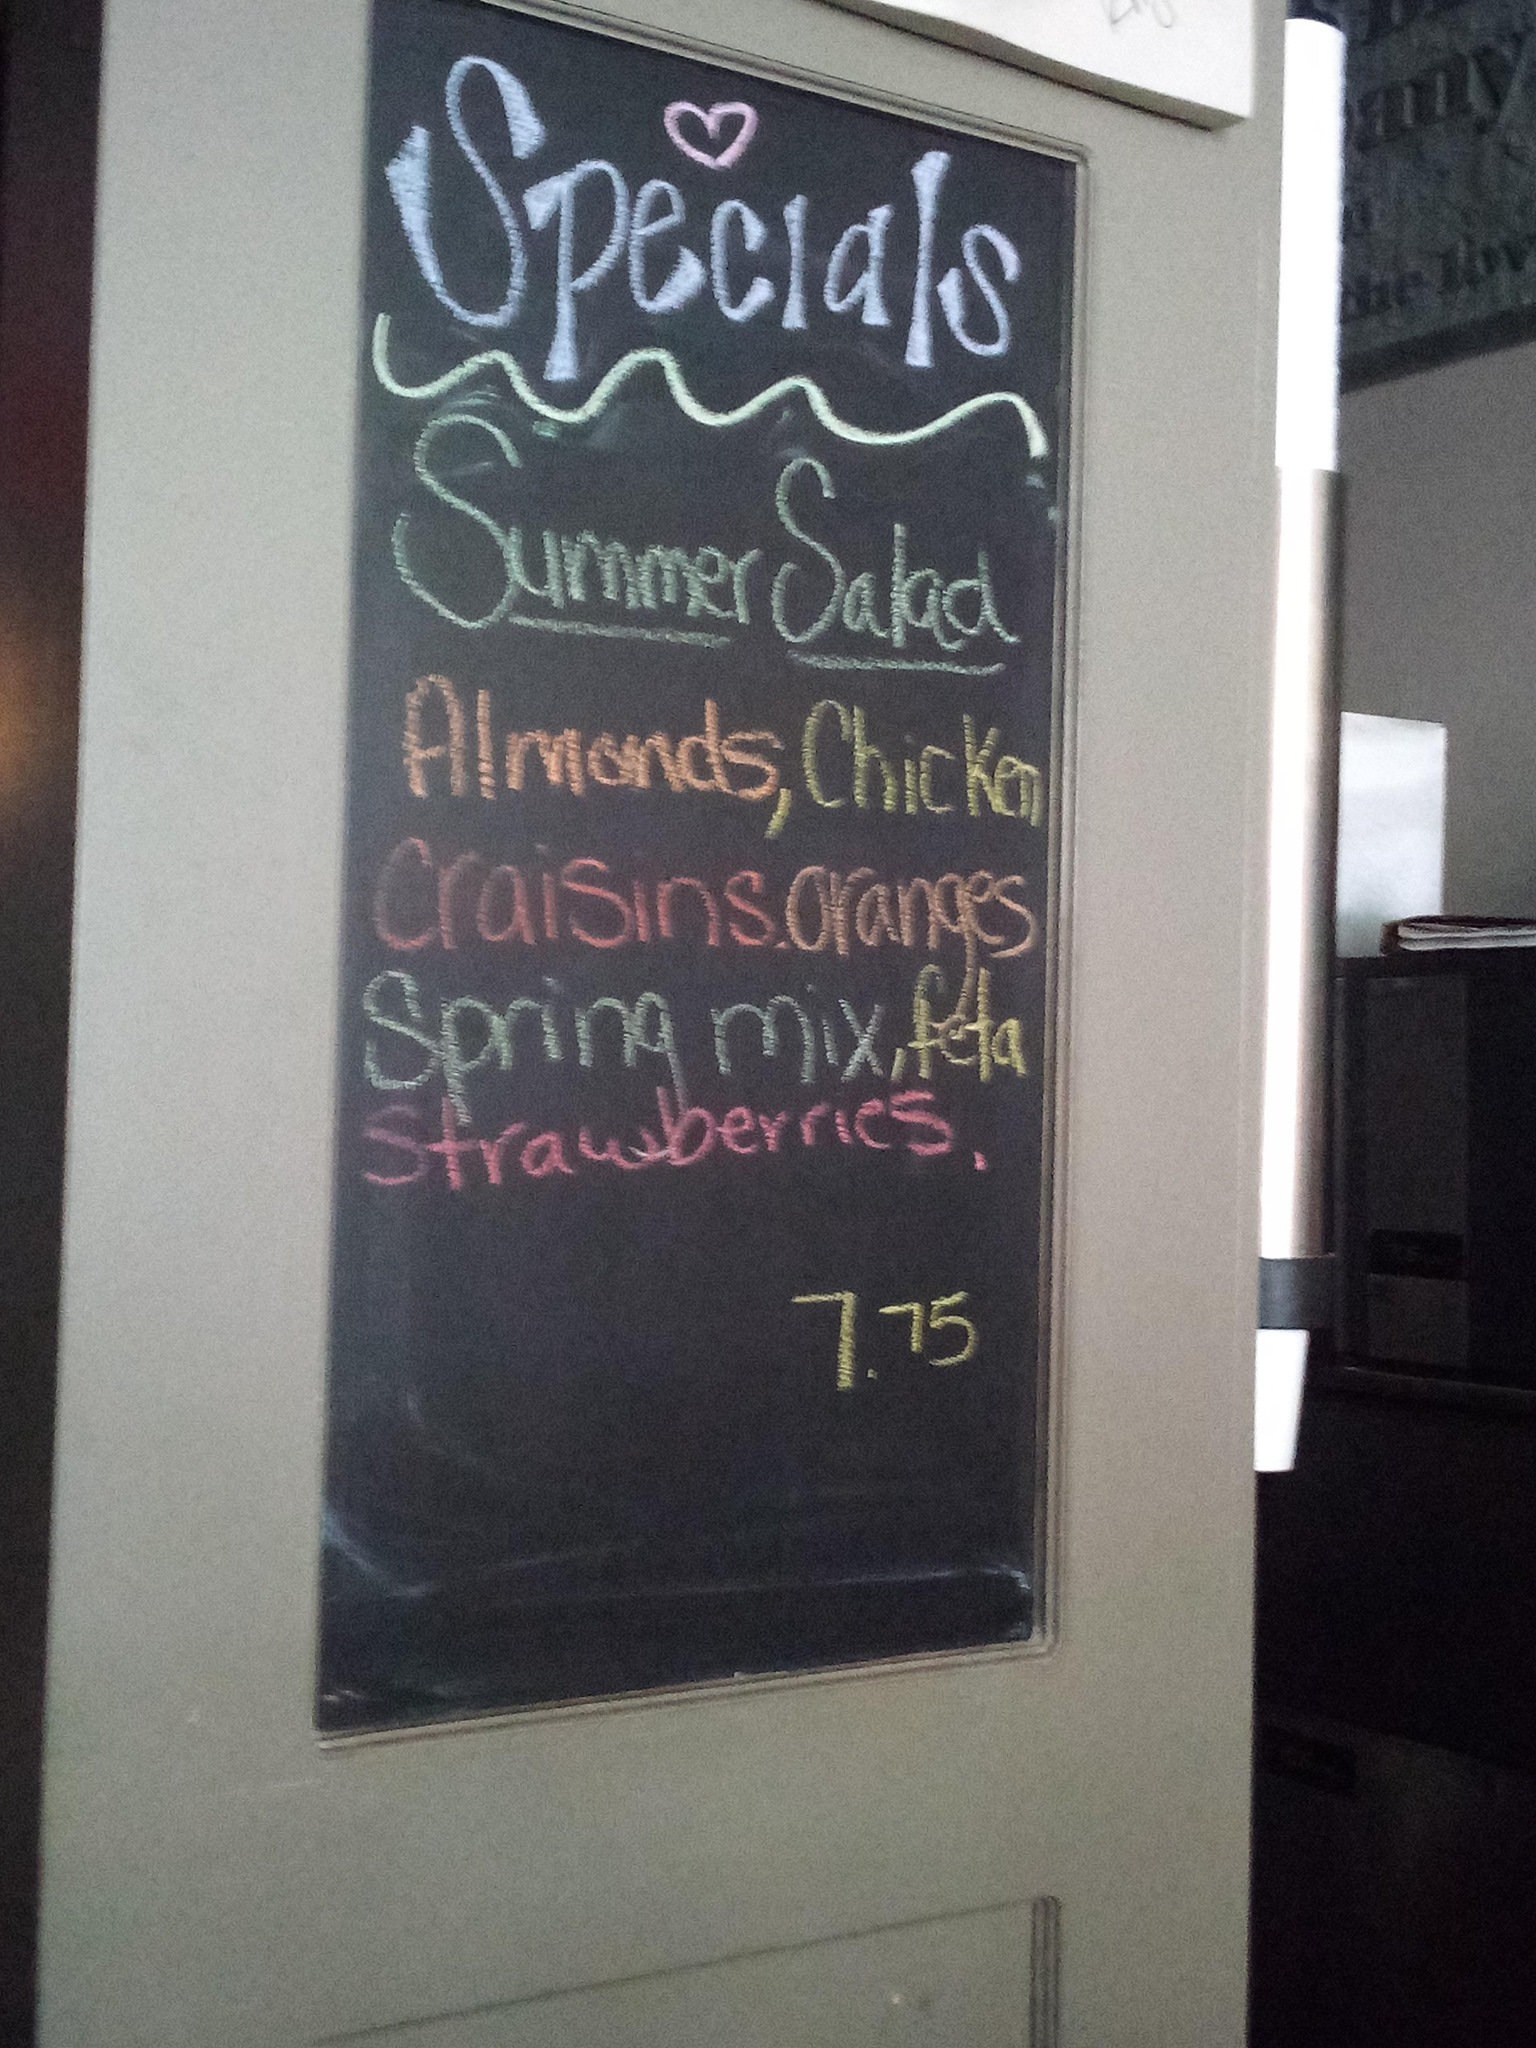 Specials
Summer Salad
Almonds, Chicken
Craisins. oranges
Spring mix, feta
Strawberries.
7.75